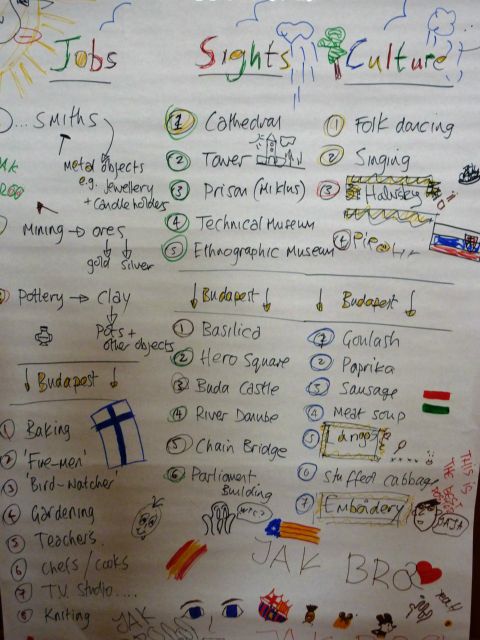 Jobs
...Smiths
Metal objects
e.g. Jewellery
+ candleholders
Mining → ores
gold silver
Pottery → clay
pots +
other objects
Budapest
1 Baking
2 'Fire-men'
3 'Bird-watcher'
4 Gardening
5 Teachers
6 Chefs / cooks
7 T.V. Studio.....
8 Kniting
Sights
1 Cathedral
2 Tower
3 Prison (Miklus)
4 Technical Museum
5 Ethnographic Museum
Budapest
1 Basilica
2 Hero Square
3 Buda Castle
4 River Danube
5 Chain Bridge
6 Parliament
Building
Culture
1 Folk dancing
2 Singing
3 Halusky
4
Budapest
1 Goulash
2 Paprika
3 Sausage
4 Meat soup
5
6 Stuffed cabbage
7 Embroidery
THIS IS
THE
JAK BRO
JAK